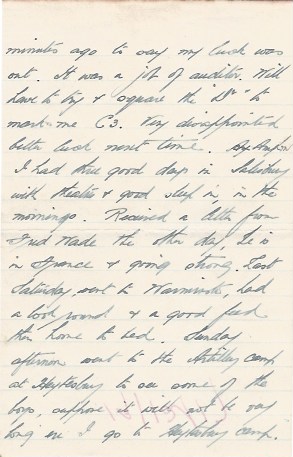 minutes ago to say my luck was
out. It was a job of auditor. Will
have to try & square the "Dr" to
mark me C3. Very disappointed
better luck next time.
I had three good days in Salisbury
with theatre & good sleep in in the
mornings. Received a letter from
Fred Wade the other day, he is
in France & going strong. Last
Saturday went to Warminster, had
a look round & a good feed
then home to bed. Sunday
afternoon went to the Artillery camp
at Heytesbury to see some of the
boys, suppose it will not be very
long ere I go to Heytesbury camp.